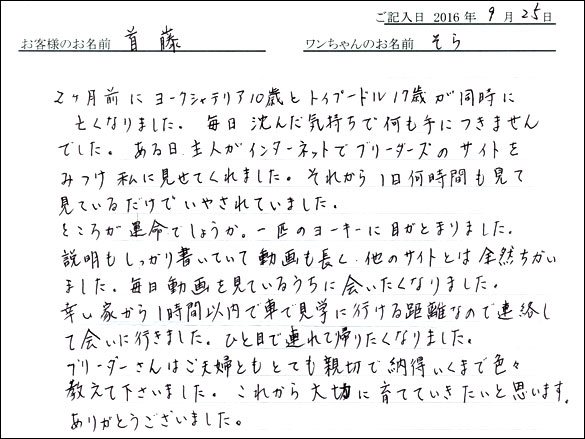 ご記入日 2016 年 9 月 25 日
お客様のお名前 首藤 ワンちゃんのお名前 そら
2ヶ月前にヨークシャテリア10歳とトイプードル17歳が同時に
亡くなりました。毎日沈んだ気持ちで何も手につきません
でした。ある日、主人がインターネットでブリーダーズのサイトを
みつけ私に見せてくれました。それから1日何時間も見て
見ているだけでいやされていました。
ところが運命でしょうか。一匹のヨーキーに目がとまりました。
説明もしっかり書いていて動画も長く、他のサイトとは全然ちがい
ました。毎日動画を見ているうちに会いたくなりました。
幸い家から1時間以内で車で見学に行ける距離なので連絡し
て会いに行きました。ひと目で連れて帰りたくなりました。
ブリーダーさんはご夫婦ともとても親切で納得いくまで色々
教えて下さいました。これから大切に育てていきたいと思います。
ありがとうございました。